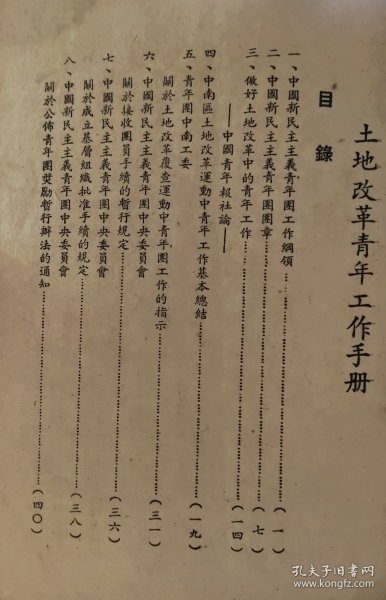 土地改革青年工作手册
目錄
一、中國新民主主義青年團工作綱領……(一)
二、中國新民主主義青年團團章……(七)
三、做好土地改革中的青年工作……(一四)
——中國青年報社論——
四、中南區土地改革運動中青年工作基本總結……(一九)
五、青年團中南工委
關於土地改革復查運動中青年團工作的指示……(三一)
六、中國新民主主義青年團中央委員會
關於接收團員手續的暫行規定……(三六)
七、中國新民主主義青年團中央委員會
關於成立基層組織批准手續的規定……(三八)
八、中國新民主主義青年團中央委員會
關於公佈青年團獎勵暫行辦法的通知……(四〇)
孔夫子旧书网
www.kongfz.com